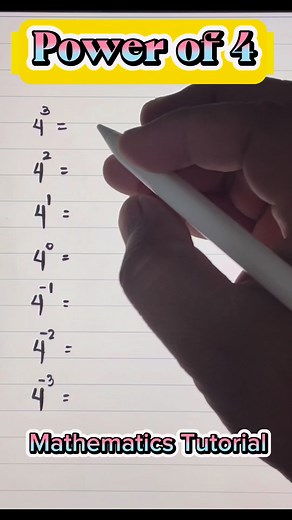 Power of 4
4³ =
4² =
4¹ =
4⁰ =
4⁻¹ =
4⁻² =
4⁻³ =
Mathematics Tutorial